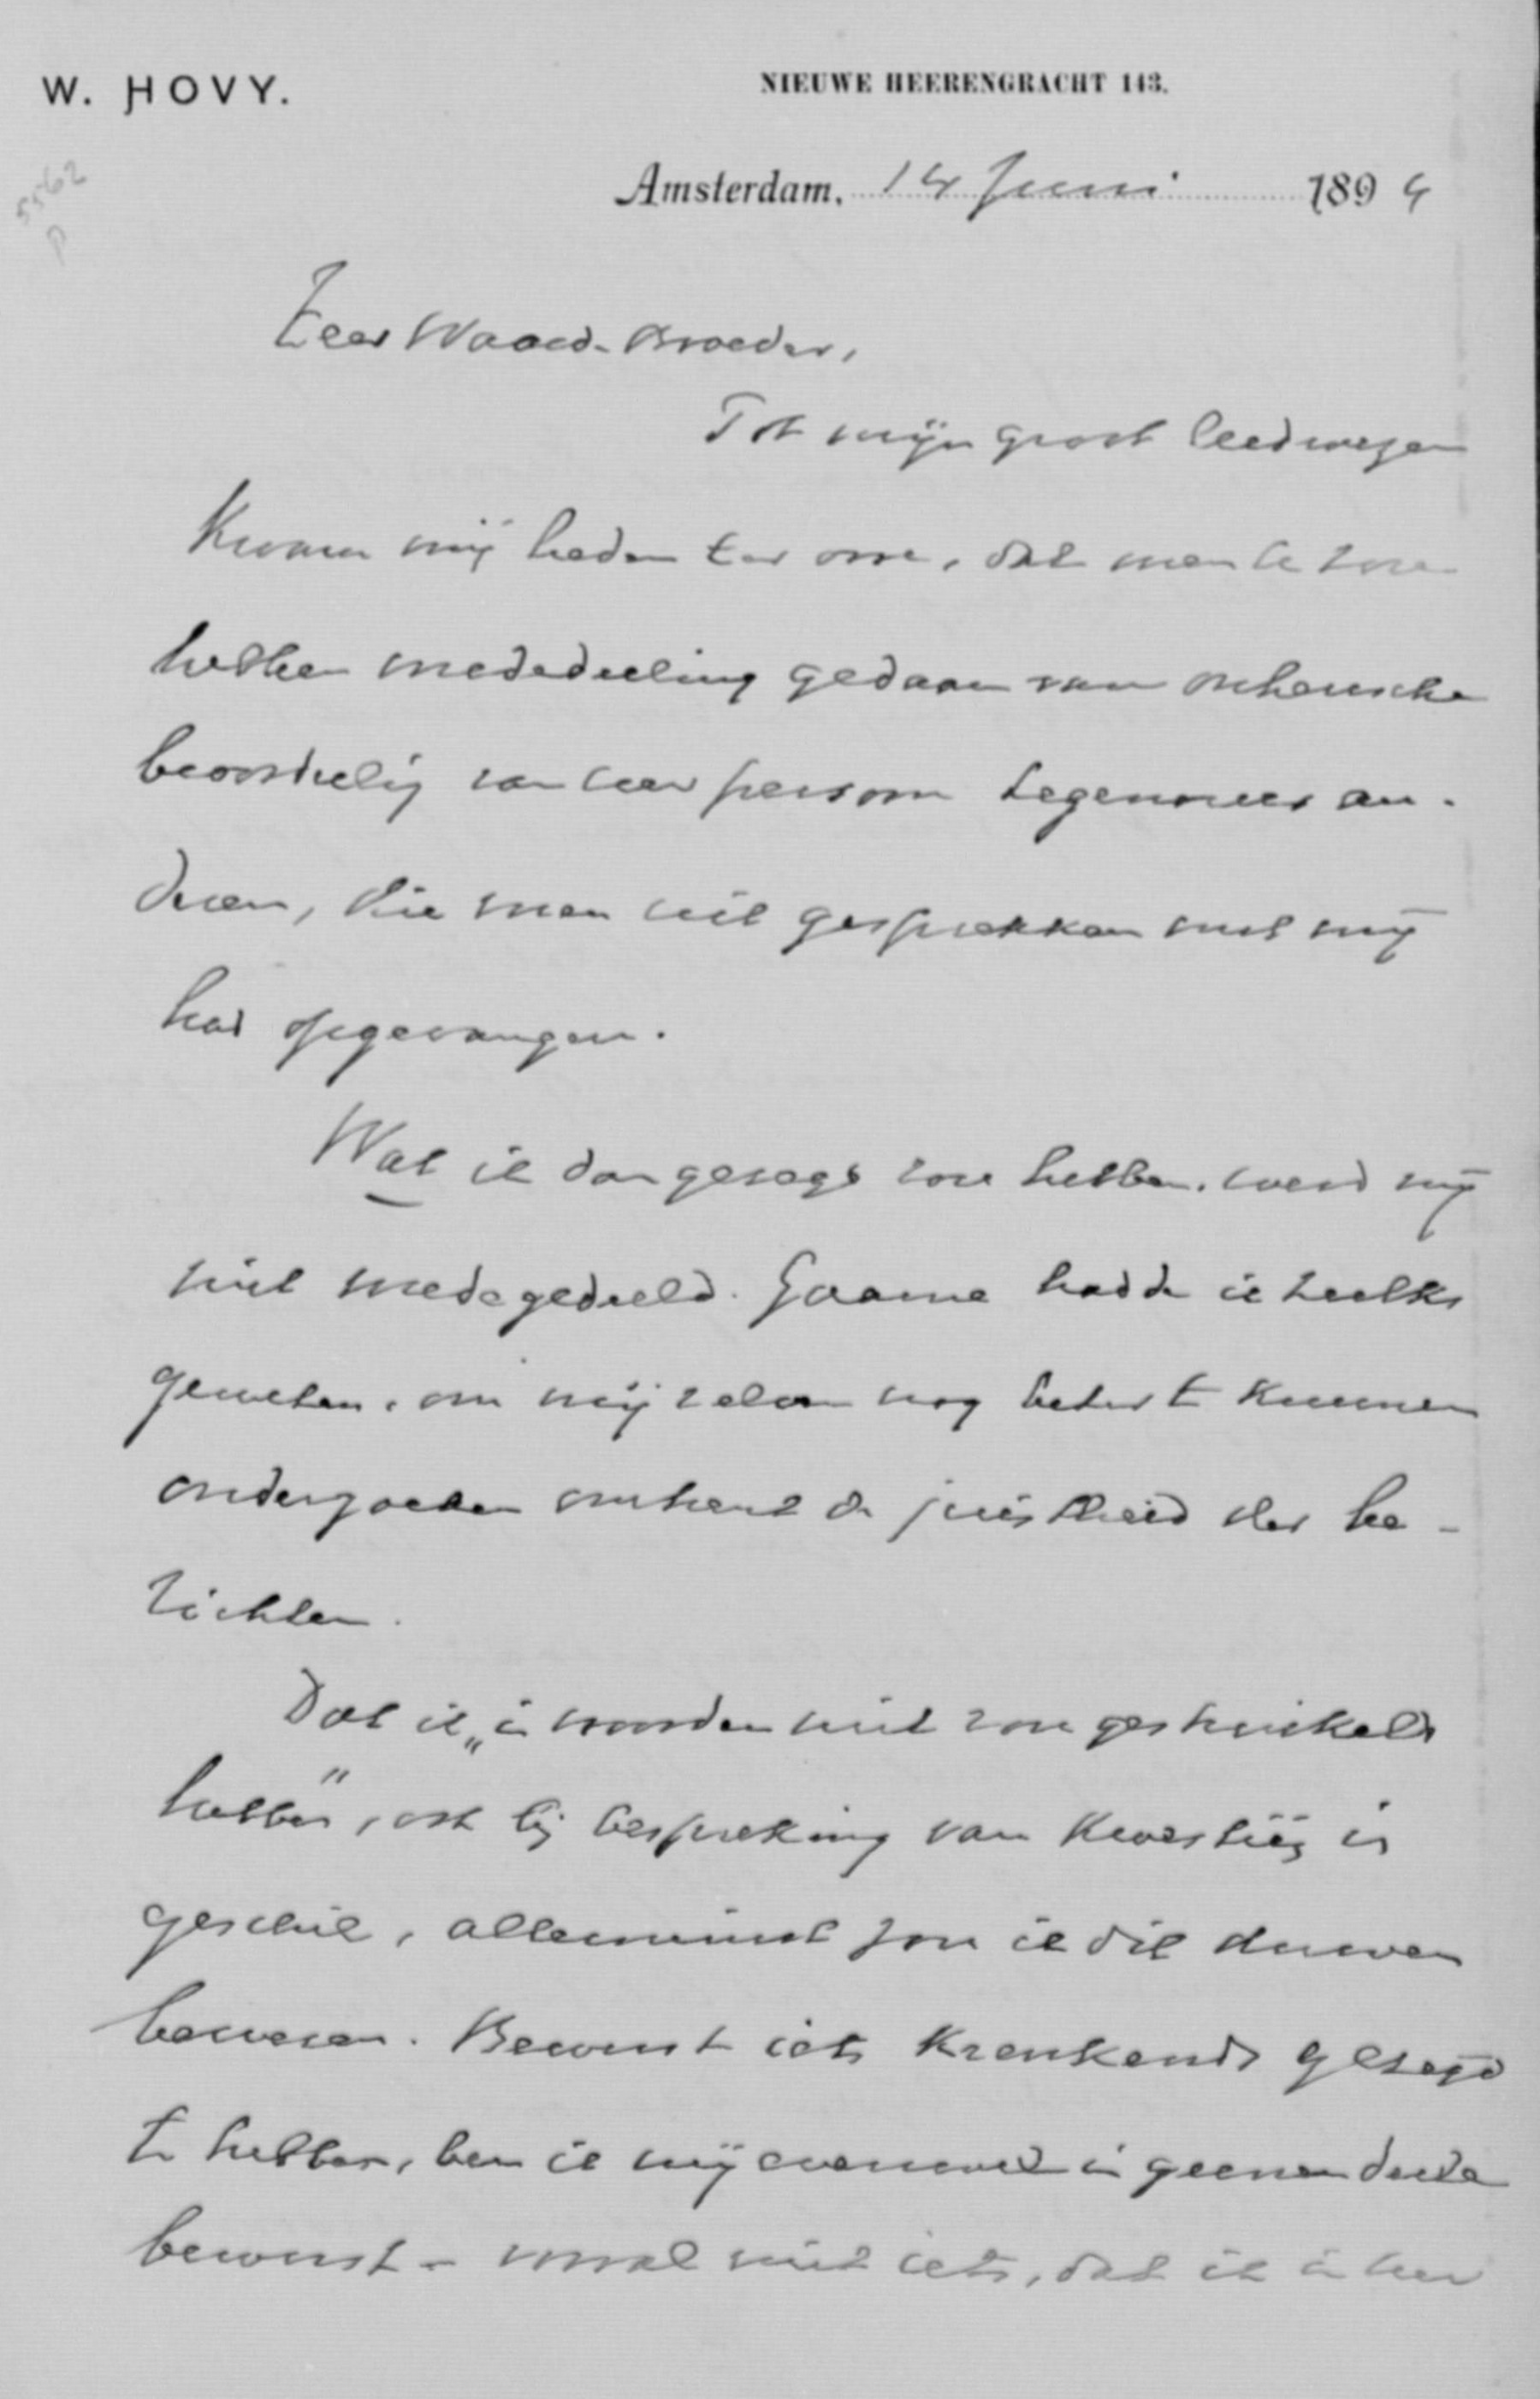 W. HOVY.
NIEUWE HEERENGRACHT 143.
5562
p
Amsterdam, 14 Juni 1894
Zeer Waarde Broeder,
Tot mijn groot leedwezen
kwam mij heden ter oore, dat men U zou
hebben mededeeling gedaan van onheusche
beoordeeling van Uw persoon tegenover an-
deren, die men uit gesprekken met mij
had opgevangen.
Wat ik dan gezegd zou hebben, werd mij
niet medegedeeld. Gaarne hadde ik zulks
geweten, om mij zelven nog beter te kunnen
onderzoeken omtrent de juistheid der be-
richten.
Dat ik "in woorden niet zou gestruikeld
hebben", ook bij bespreking van kwestiën in
geschil, allerminst zou ik dit durven
beweren. Bewust iets krenkends gezegd
te hebben, ben ik mij evenwel in geenen deele
bewust - vooral niet iets, dat ik in Uw